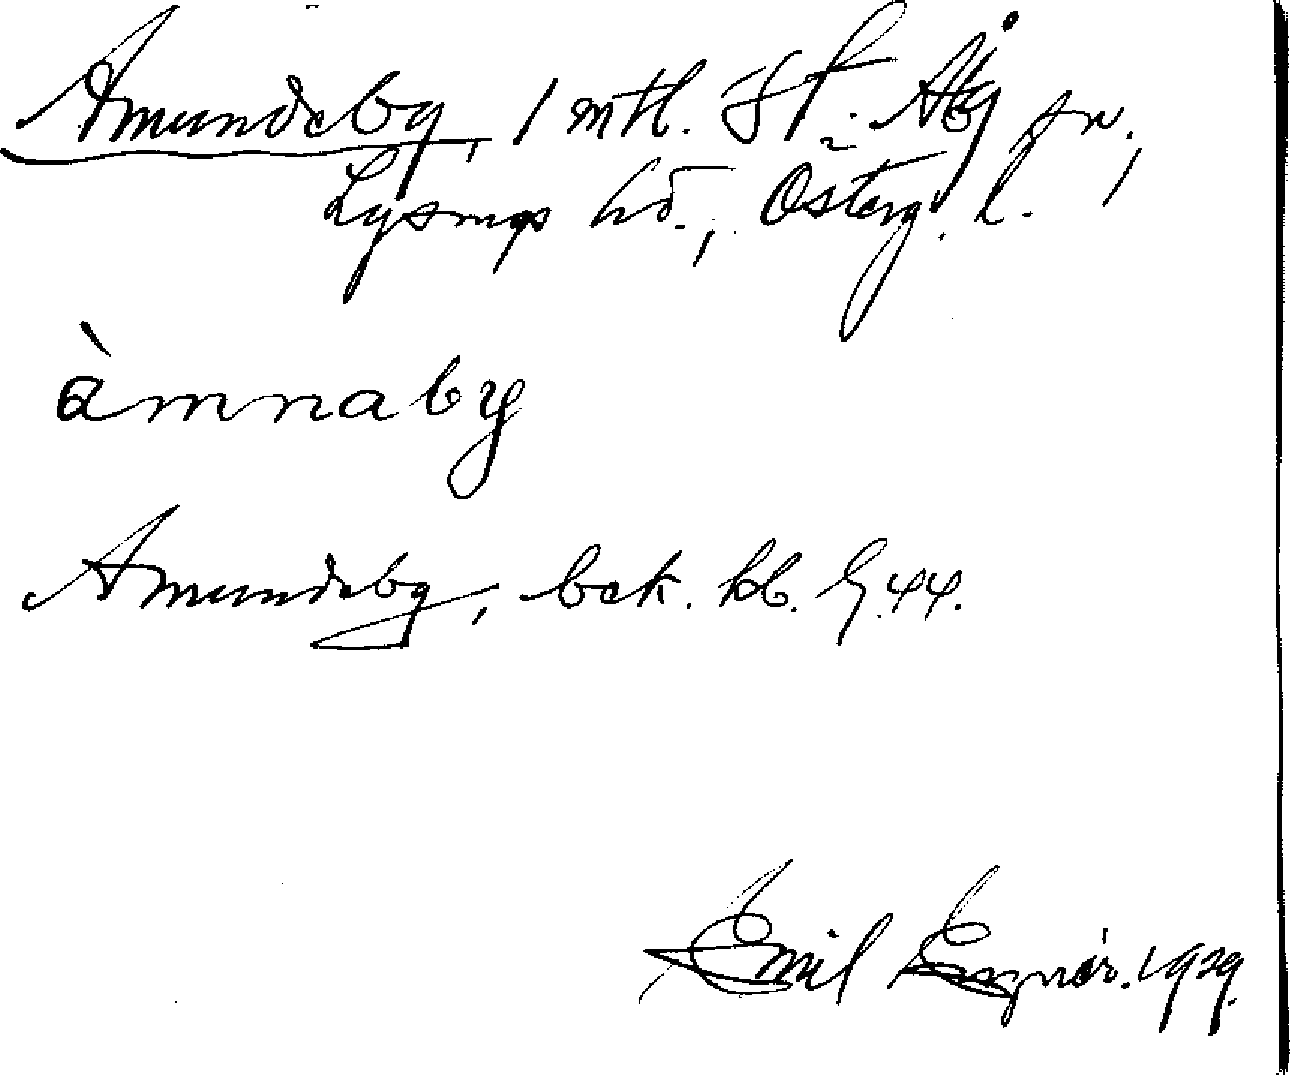 Amundeby, 1 mtl. St. Åby sn.,
Lysings hd., Österg. l.
àmnaby
Amundeby, bet. kb. G.44.
Emil 1929.